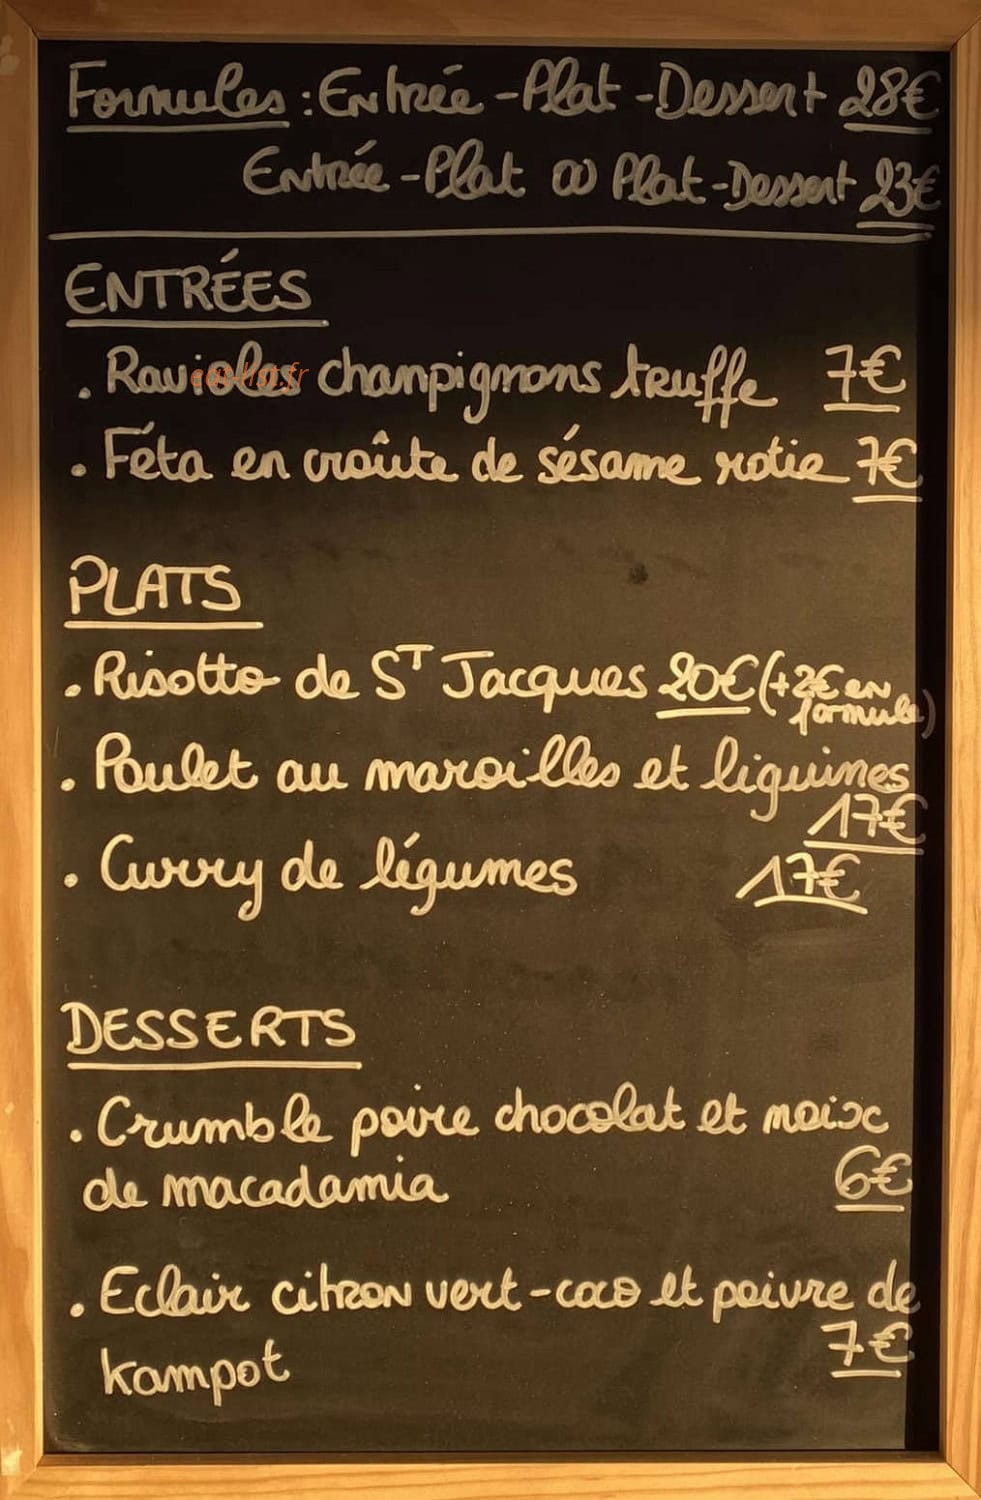 Formules : Entrée - Plat - Dessert 28€
Entrée - Plat ou Plat - Dessert 23€
ENTRÉES
. Ravioles champignons truffe 7€
eat-list.fr
. Féta en croûte de sésame rotie 7€
PLATS
. Risotto de ST Jacques 20€ (+2€ en formule)
. Poulet au maroilles et liguines
17€
. Curry de légumes 17€
DESSERTS
. Crumble poire chocolat et noix
de macadamia 6€
. Eclair citron vert - coco et poivre de
kampot 7€